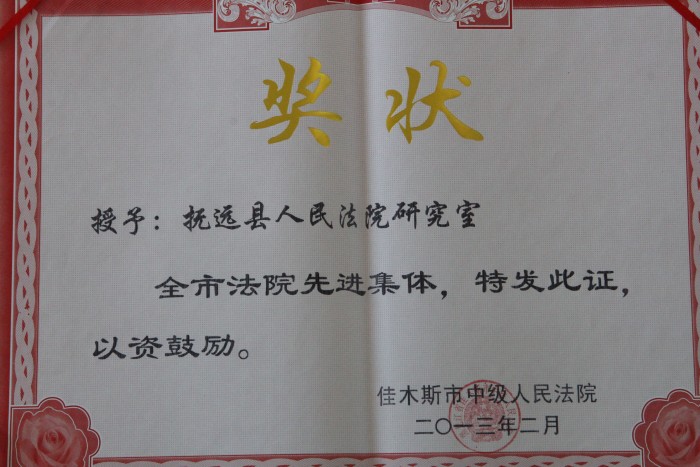 奖状
授予：抚远县人民法院研究室
全市法院先进集体，特发此证，
以资鼓励。
佳木斯市中级人民法院
二〇一三年二月